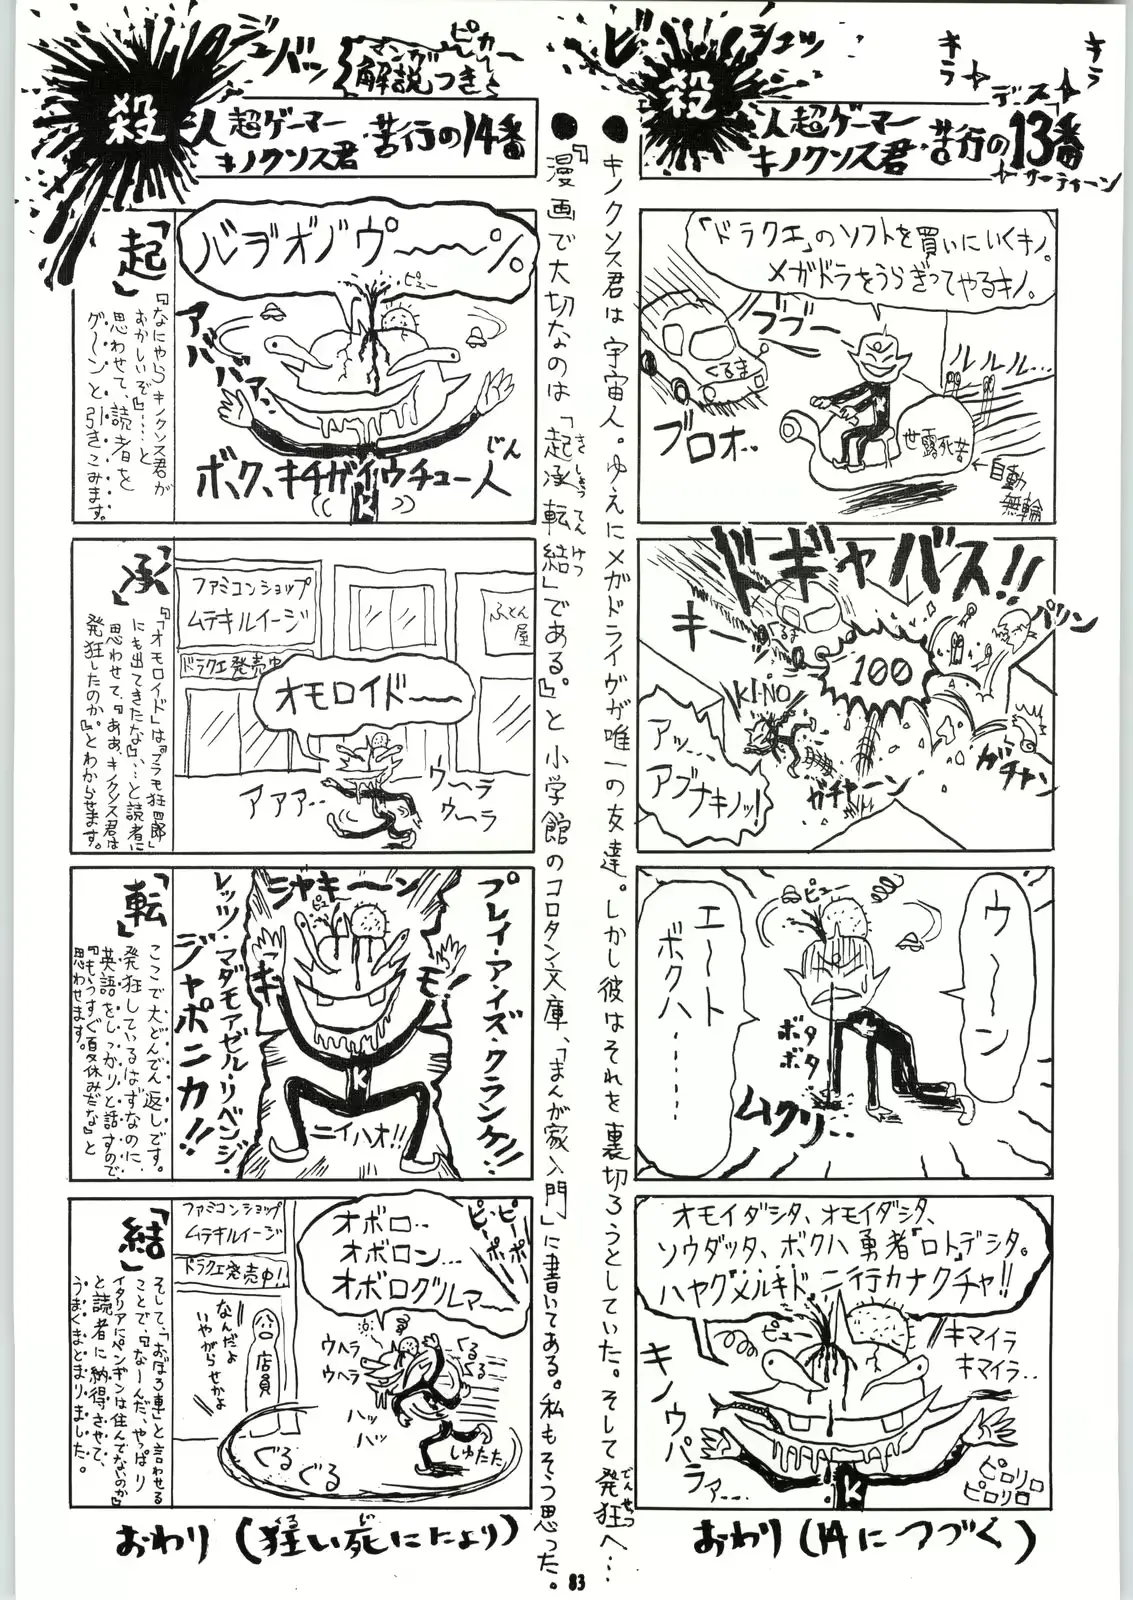 ビシュッ
キラ
キラ
殺人超ゲーマー
キノクソス君
苦行の13番
デス
サーティーン
「ドラクエ」のソフトを買いにいくキノ。
メガドラをうらぎってやるキノ。
ブブー
くるま
ルルル…
ブロオ‥
世露死苦
←自動
無輪
ドギャバス!!
キー
くるま
100
パリン
KI・NO
ガチャーン
ガチャン
アッ…
アブナキノッ!
ウ〜〜ン
エ〜〜ト
ボクハ………
ピュー
ボタ
ボタ
ムクリ…
オモイダシタ、オモイダシタ、
ソウダッタ、ボクハ勇者『ロト』デシタ。
ハヤクメルキドニ行カナクチャ!!
ピュー
キマイラ
キマイラ‥
キノウパラァァ…
K
ピロリロ
ピロリロ
おわり(14につづく)
●キノクソス君は宇宙人。ゆえにメガドライヴが唯一の友達。しかし彼はそれを裏切ろうとしていた。そして発狂へ…
でんせつ
●『漫画で大切なのは「起承転結」である。』と小学館のコロタン文庫、「まんが家入門」に書いてある。私もそう思った。
きしょうてんけつ
ジュバッ
マンガ
解説つき
ピカー
殺人超ゲーマー
キノクソス君
苦行の14番
「起」
『なにやらキノクソス君が
おかしいぞ』……と
思わせて、読者を
グーンと引きこみます。
ルヲオノウ゜〜〜〜%。
ピュー
アバババァ
ボク、キチガイウチュー人
じん
K
「承」
『「オモロイド」は『プラモ狂四郎』
にも出てきたな』…と読者に
思わせて、『ああ、キクソス君は
発狂したのか。』とわからせます。
ファミコンショップ
ムテキルイージ
ドラクエ発売中
ふとん屋
オモロイド〜〜
アアア‥
ウヘラ
ウヘラ
「転」
ここで大どんでん返しです。
発狂しているはずなのに、
英語をしっかりと話すので、
『もうすぐ夏休みだな』と
思わせます。
プレイ・アイズ・クランケン‥
ジャキーーン
ピュー
ッキ
モ!
K
ニイハオ!!
レッツ・マダモアゼル・リベンジ・
ジャポニカ!!
「結」
そして、「おぼろ車」と言わせる
ことで、『なーんだ、やっぱり
イタリアにペンギンは住んでないのか』
と読者に納得させて、
うまくまとまりました。
ファミコンショップ
ムテキルイージ
ドラクエ発売中!!
なんだよ
いやがらせかよ
店員
オボロ‥
オボロン…
オボログルマ〜〜
ピーポー
ピーポー
ウヘラ
ウヘラ
ハッ
ハッ
ぐる
ぐる
しゅたた
ぐる
ぐる
おわり(狂い死ににより)
くるじ
83